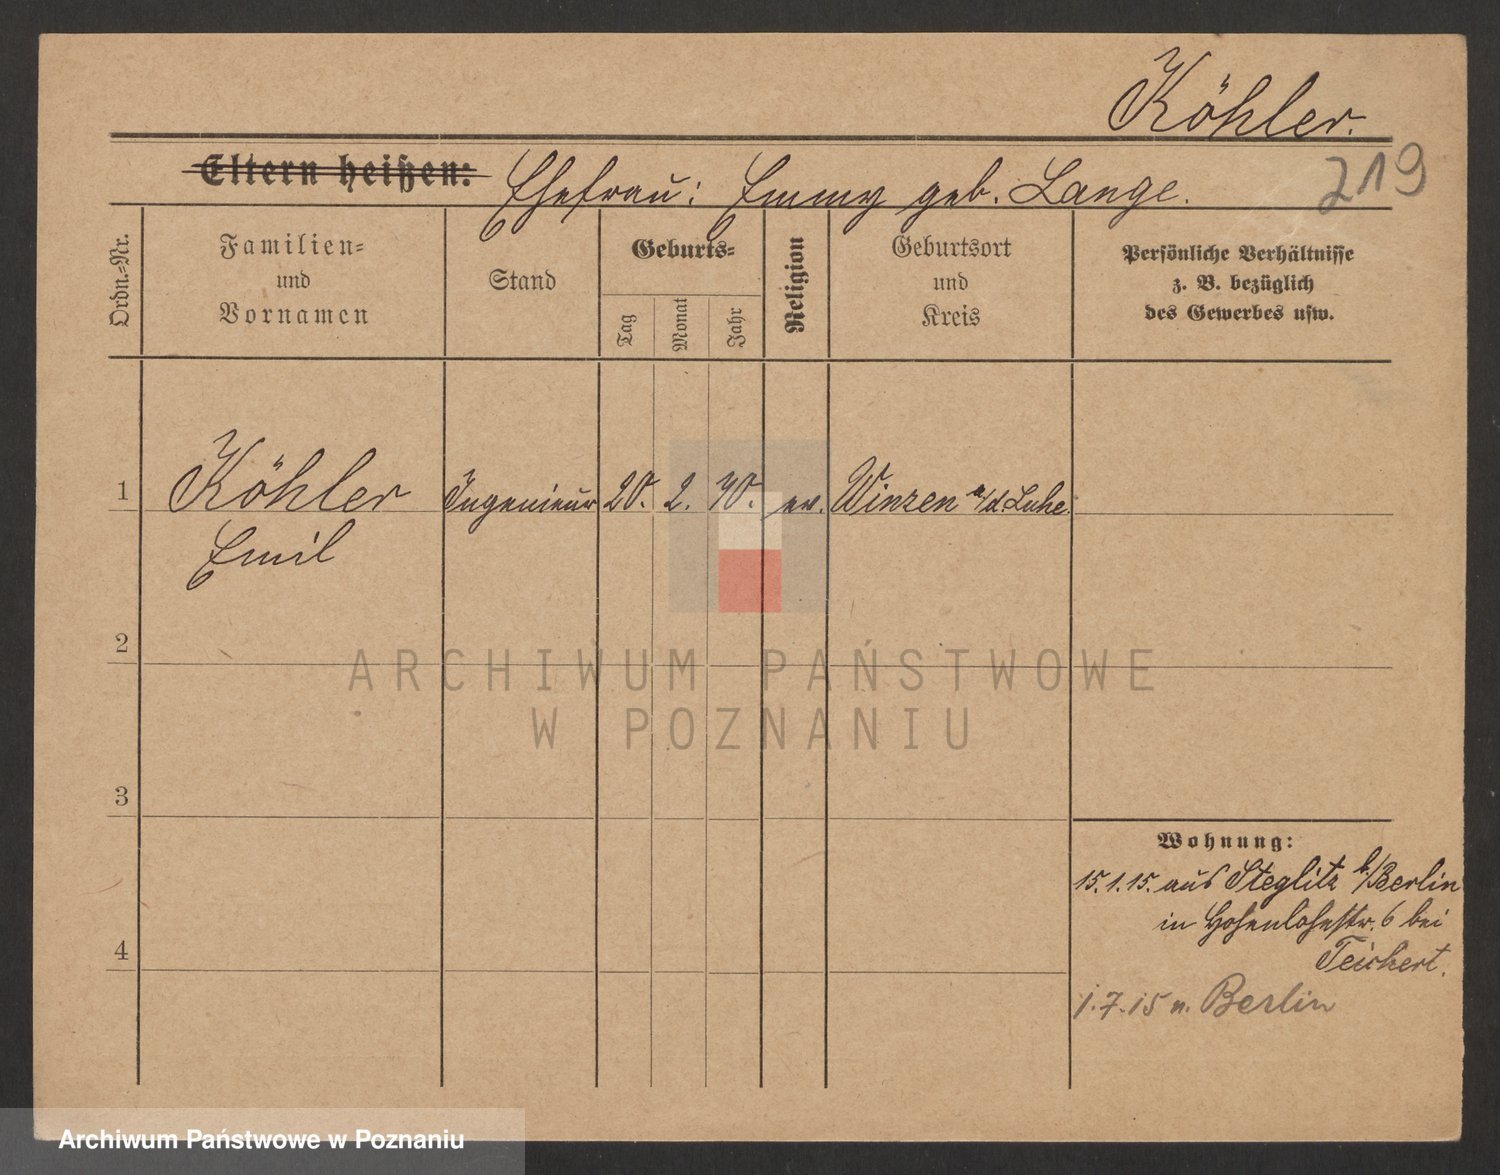 Köhler.
219
Eltern heißen: Ehefrau: Emmy geb. Lange.
Ordn.-Nr.
Familien-
und
Vornamen
Stand
Geburts-
Tag
Monat
Jahr
Religion
Geburtsort
und
Kreis
Persönliche Verhältnisse
z. B. bezüglich
des Gewerbes usw.
1 Köhler Ingenieur 20. 2. 70. ev. Winsen a/d. Luhe.
Emil
2
ARCHIWUM PAŃSTWOWE
W POZNANIU
3
Wohnung:
15.1.15. aus Steglitz b/Berlin
in Hohenlohestr. 6 bei
4
Teichert.
1.7.15 n. Berlin
Archiwum Państwowe w Poznaniu